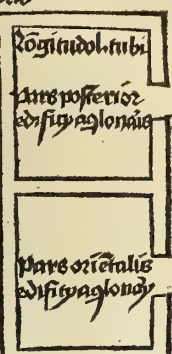 Lōgitudo l. tubi
pars posterior
edificy aqlonais
pars oriētalis
edificy aqlonaȷ